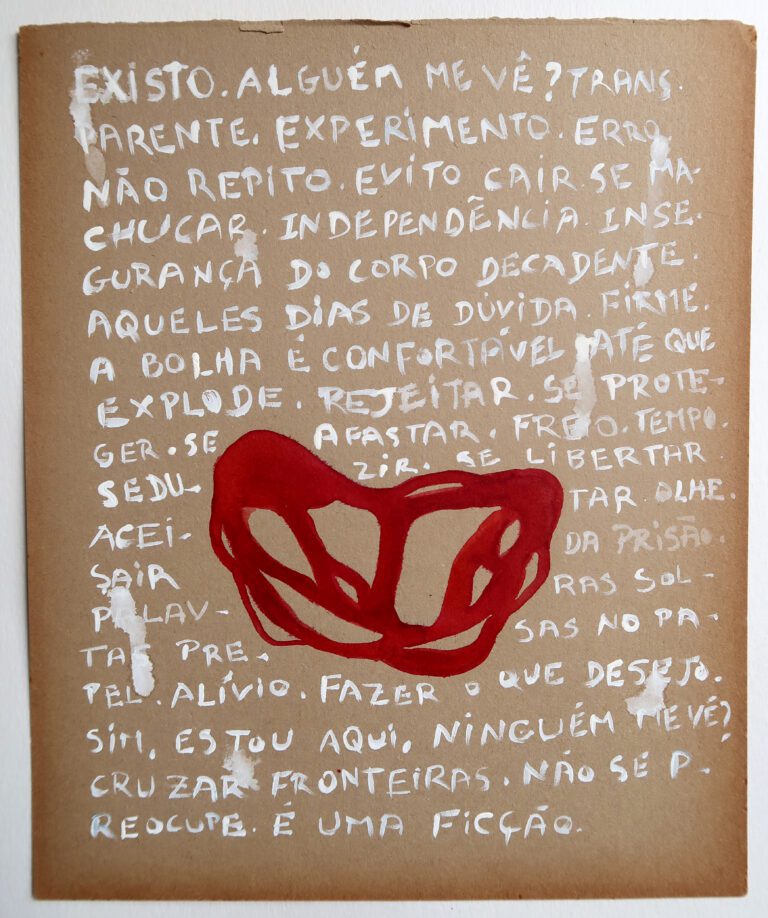 EXISTO. ALGUÉM ME VÊ? TRANS.
PARENTE. EXPERIMENTO. ERRO.
NÃO REPITO. EVITO CAIR. SE MA-
CHUCAR. INDEPENDÊNCIA. INSE-
GURANÇA DO CORPO DECADENTE.
AQUELES DIAS DE DÚVIDA. FIRME.
A BOLHA É CONFORTÁVEL ATÉ QUE
EXPLODE. REJEITAR. SE PROTE-
GER. SE AFASTAR. FREIO. TEMPO.
SEDU- ZIR. SE LIBERTAR.
ACEI- TAR. OLHE.
SAIR DA PRISÃO.
PALAV- RAS SOL-
TAS PRE- SAS NO PA-
PEL. ALÍVIO. FAZER O QUE DESEJO.
SIM, ESTOU AQUI, NINGUÉM ME VÉ?
CRUZAR FRONTEIRAS. NÃO SE P-
REOCUPE. É UMA FICÇÃO.